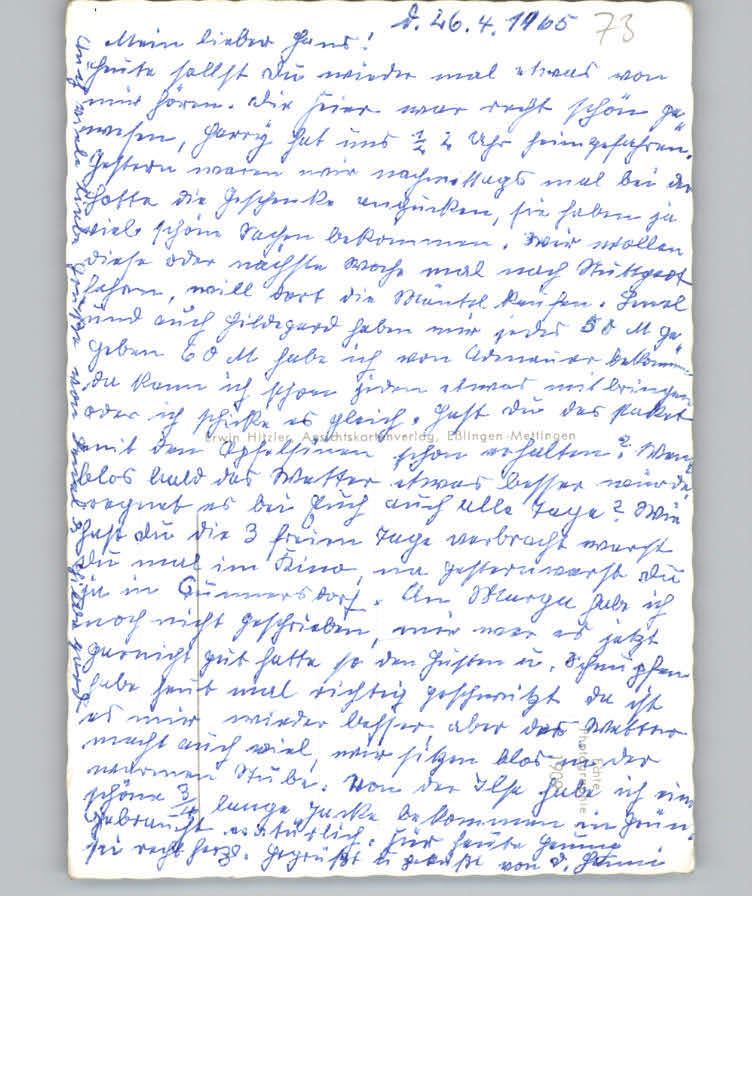 d. 26.4.1965 73
Mein lieber Hans!
Heute sollst Du wieder mal etwas von
mir hören. Die Feier war recht schön ge-
wesen, Harry hat uns ½ 2 Uhr heimgefahren.
Gestern waren wir nachmittags mal bei der
Lotte die Geschenke angucken, sie haben ja
viele schöne Sachen bekommen. Wir wollen
diese oder nächste Woche mal nach Stuttgart
fahren, will dort die Mäntel kaufen.
und auch Hildegard haben mir jedes 50 M ge-
geben 60 M habe ich von bekommen
da kann ich schon jeden etwas mitbringen
oder ich schicke es gleich. Hast Du das Paket
Erwin Hitzler, Ansichtskartenverlag, Eßlingen-Mettingen
mit den Apfelsinen schon erhalten? Wenn
blos bald das Wetter etwas besser würde,
regnet es bei Euch auch alle Tage? Wie
hast Du die 3 freien Tage verbracht warst
Du mal im Kino, na gestern warst Du
ja in Cunnersdorf. An Marga habe ich
noch nicht geschrieben, mir war es jetzt
garnicht gut hatte so den Husten u. Schnupfen
habe heut mal richtig geschwitzt da ist
es mir wieder besser, aber das Wetter
macht auch viel, wir sitzen blos in der
warmen Stube. Von der Ilse habe ich eine
schöne 3/4 lange Jacke bekommen in Grün,
gebraucht natürlich. Für heute genug
sei recht herzl. gegrüßt u. geküßt von d.
Echte
Photographie
Auch viele liebe Grüße von